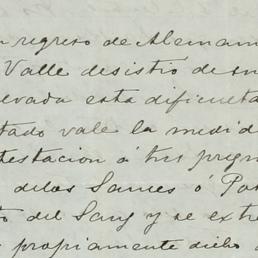 n regreso de Aleman
Valle desistio de su
levada esta dificulta
tado vale la medid
testacion á tus pregu
delos Sames ó Pa
to del Sang y se extre
propiamente dicho